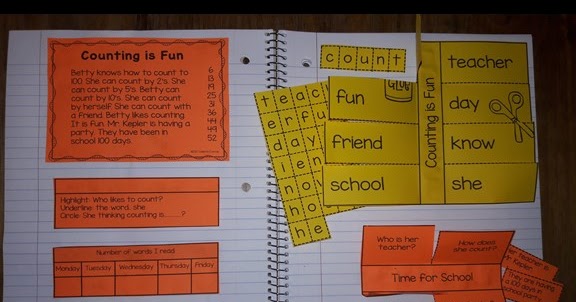 Counting is Fun
Betty knows how to count to 6
100. She can count by 2's. She 13
can count by 5's. Betty can 19
count by 10's. She can count 25
by herself. She can count with 31
a friend. Betty likes counting. 36
It is fun. Mr. Kepler is having a 44
party. They have been in 49
school 100 days. 52
Highlight: Who likes to count?
Underline: the word...she
Circle: She thinking counting is.......?
Number of words I read
Monday Tuesday Wednesday Thursday Friday
c o u n t
t e a c
e r f u
d a y
i e n
n o
h o
h e
fun
friend
school
GLUE
Counting is Fun
teacher
day
know
she
Who is her teacher?
How does she count?
Time for School
Her teacher is
Mr. Kepler.
They are having
a 100 days in
school party.